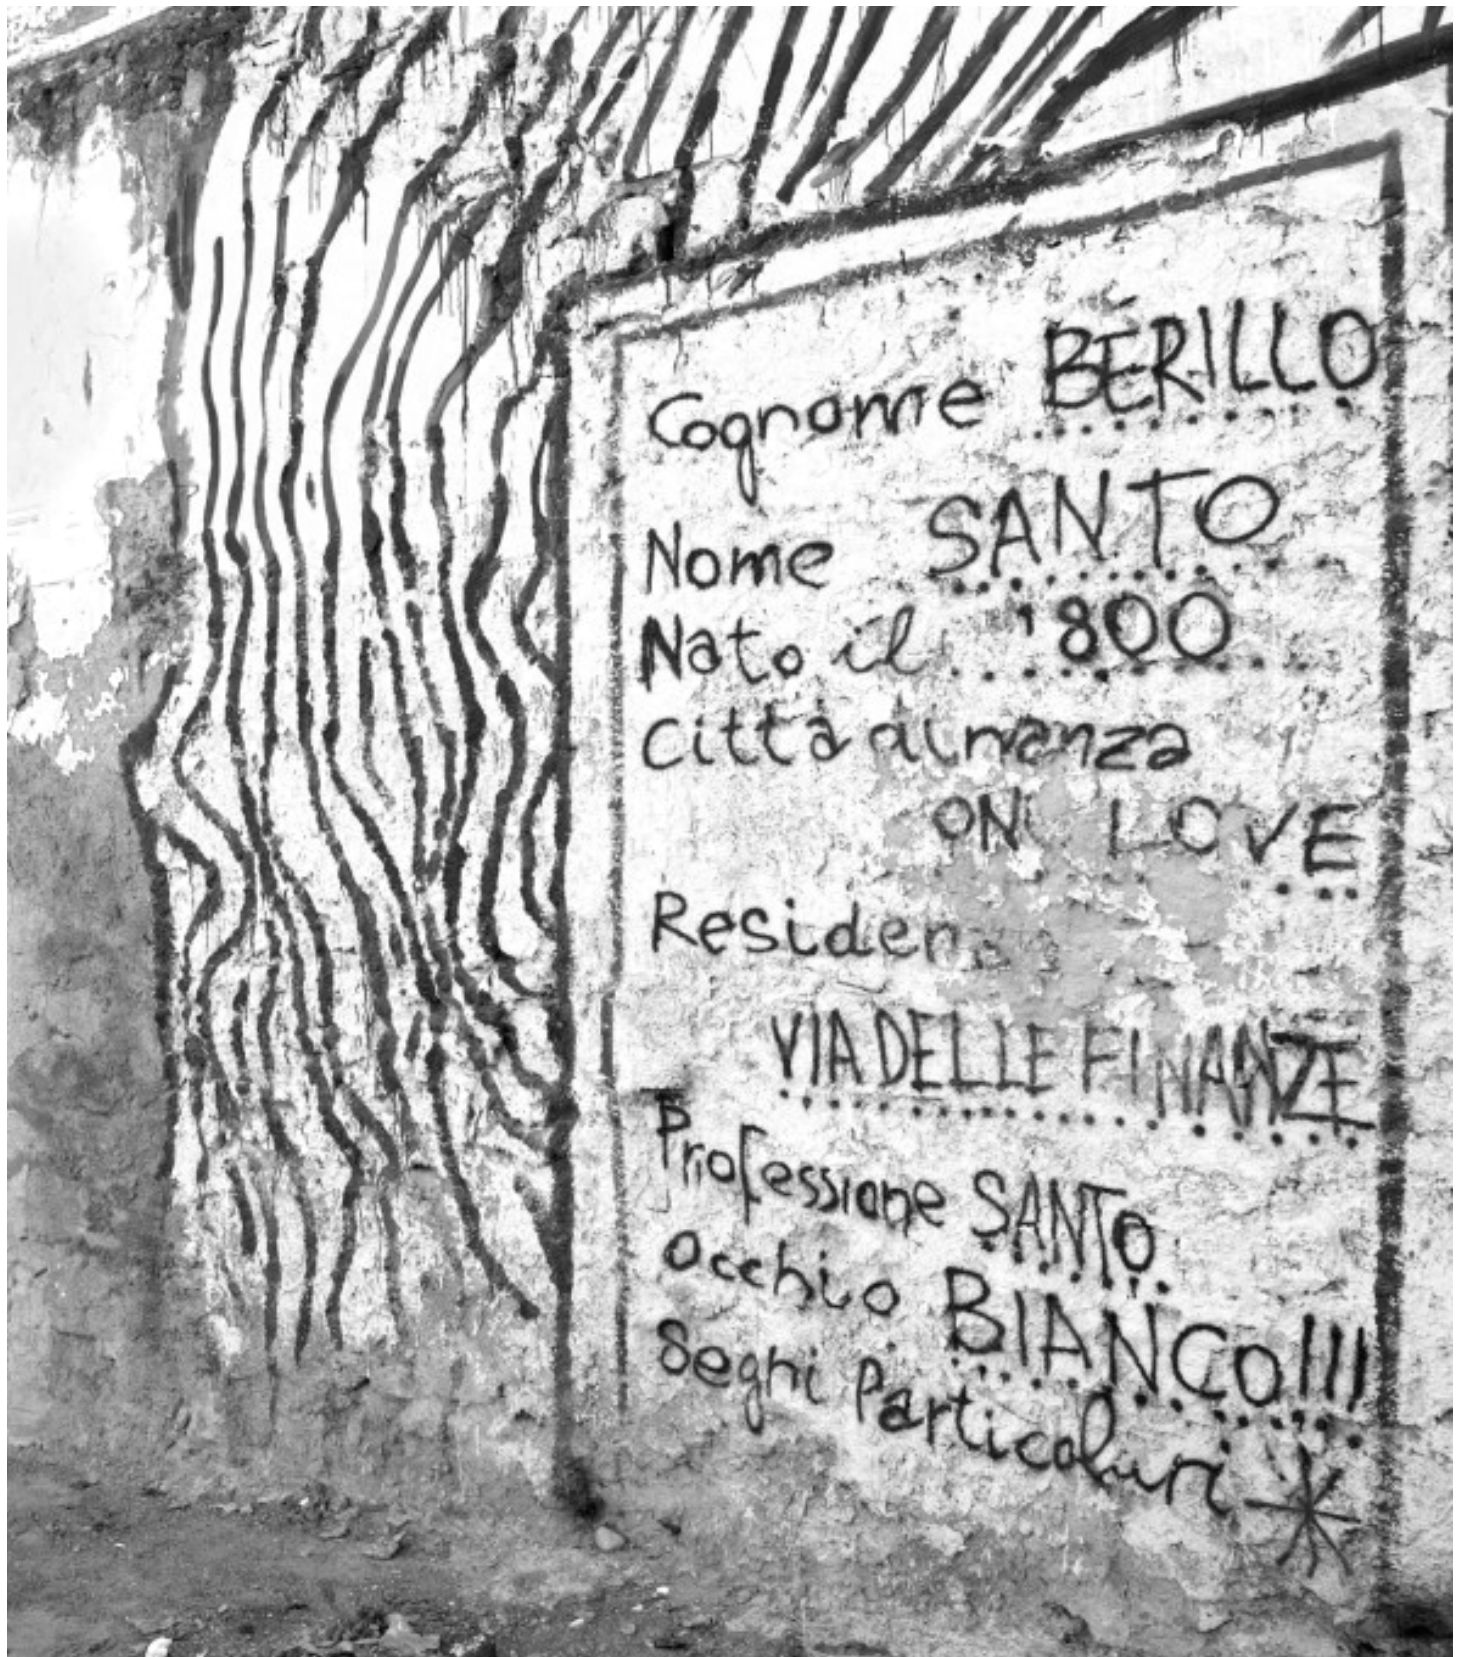 Cognome BERILLO
Nome SANTO
Nato il '800
Città
ON LOVE
Residen
VIA DELLE FINANZE
Professione SANTO
Occhio BIANCO!!!
Seghi Particoluri *